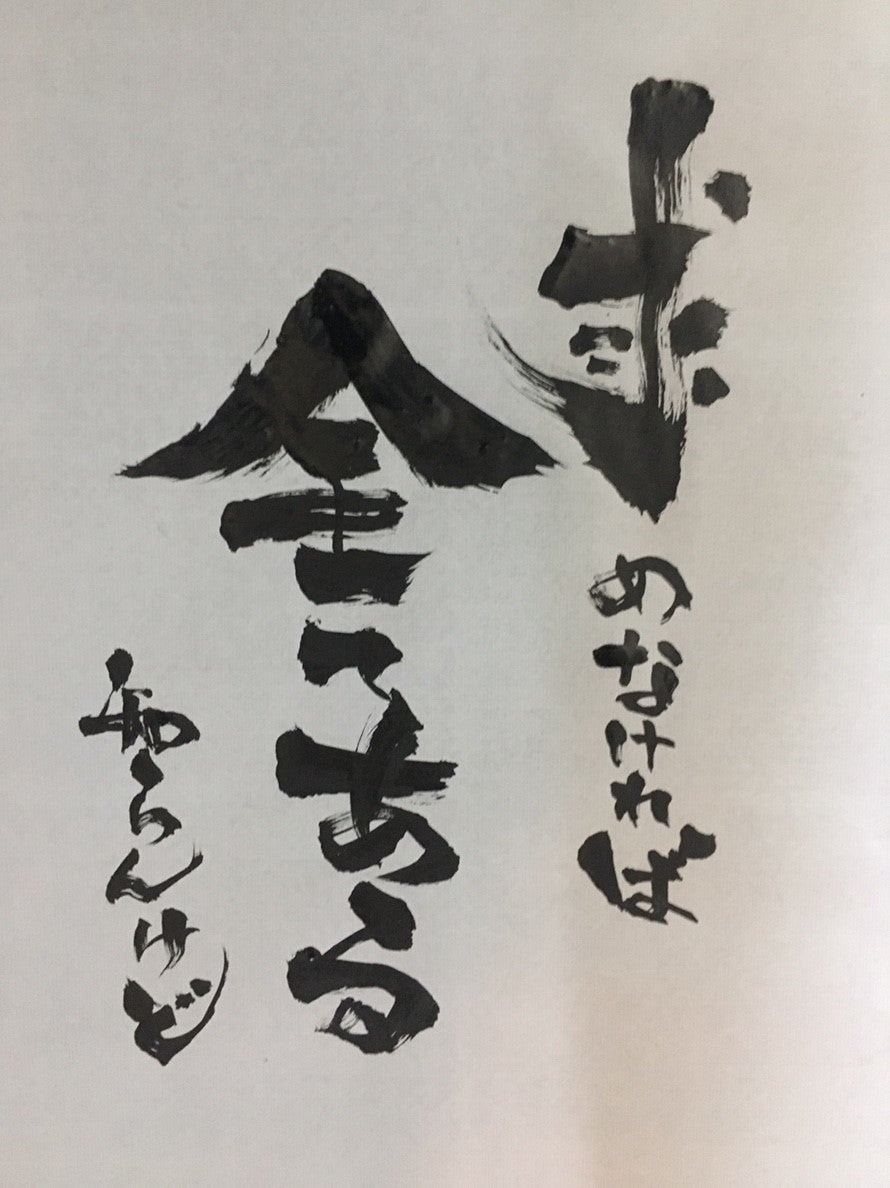 求めなければ
全てある
知らんけど